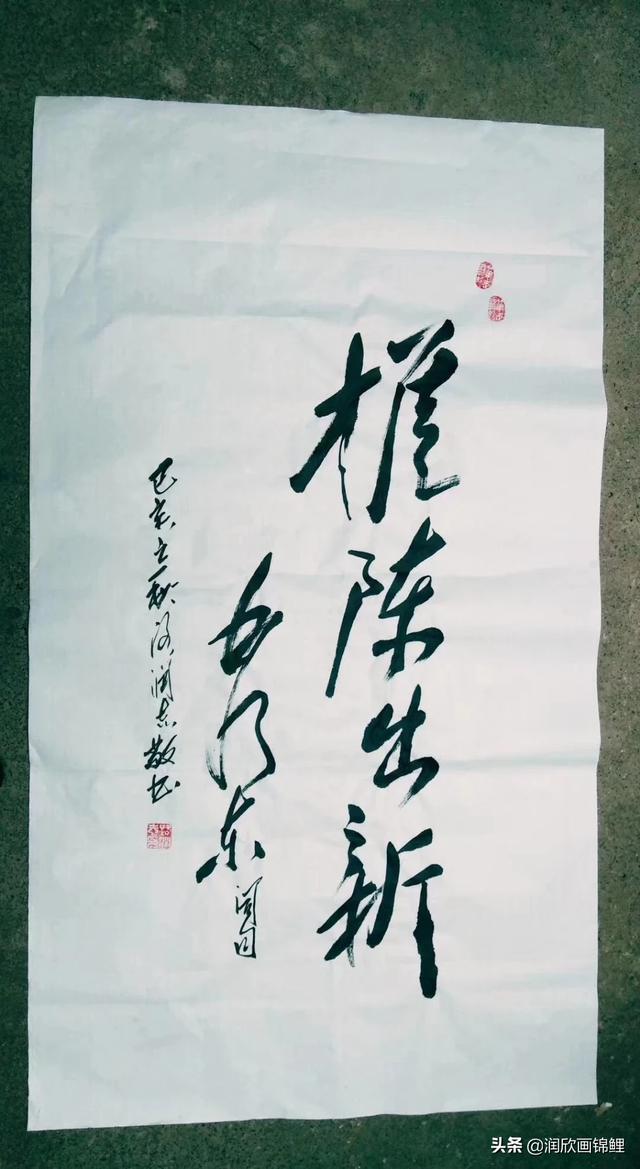 推陈出新
毛泽东
己亥之秋 润志敬书
头条 @润欣画锦鲤